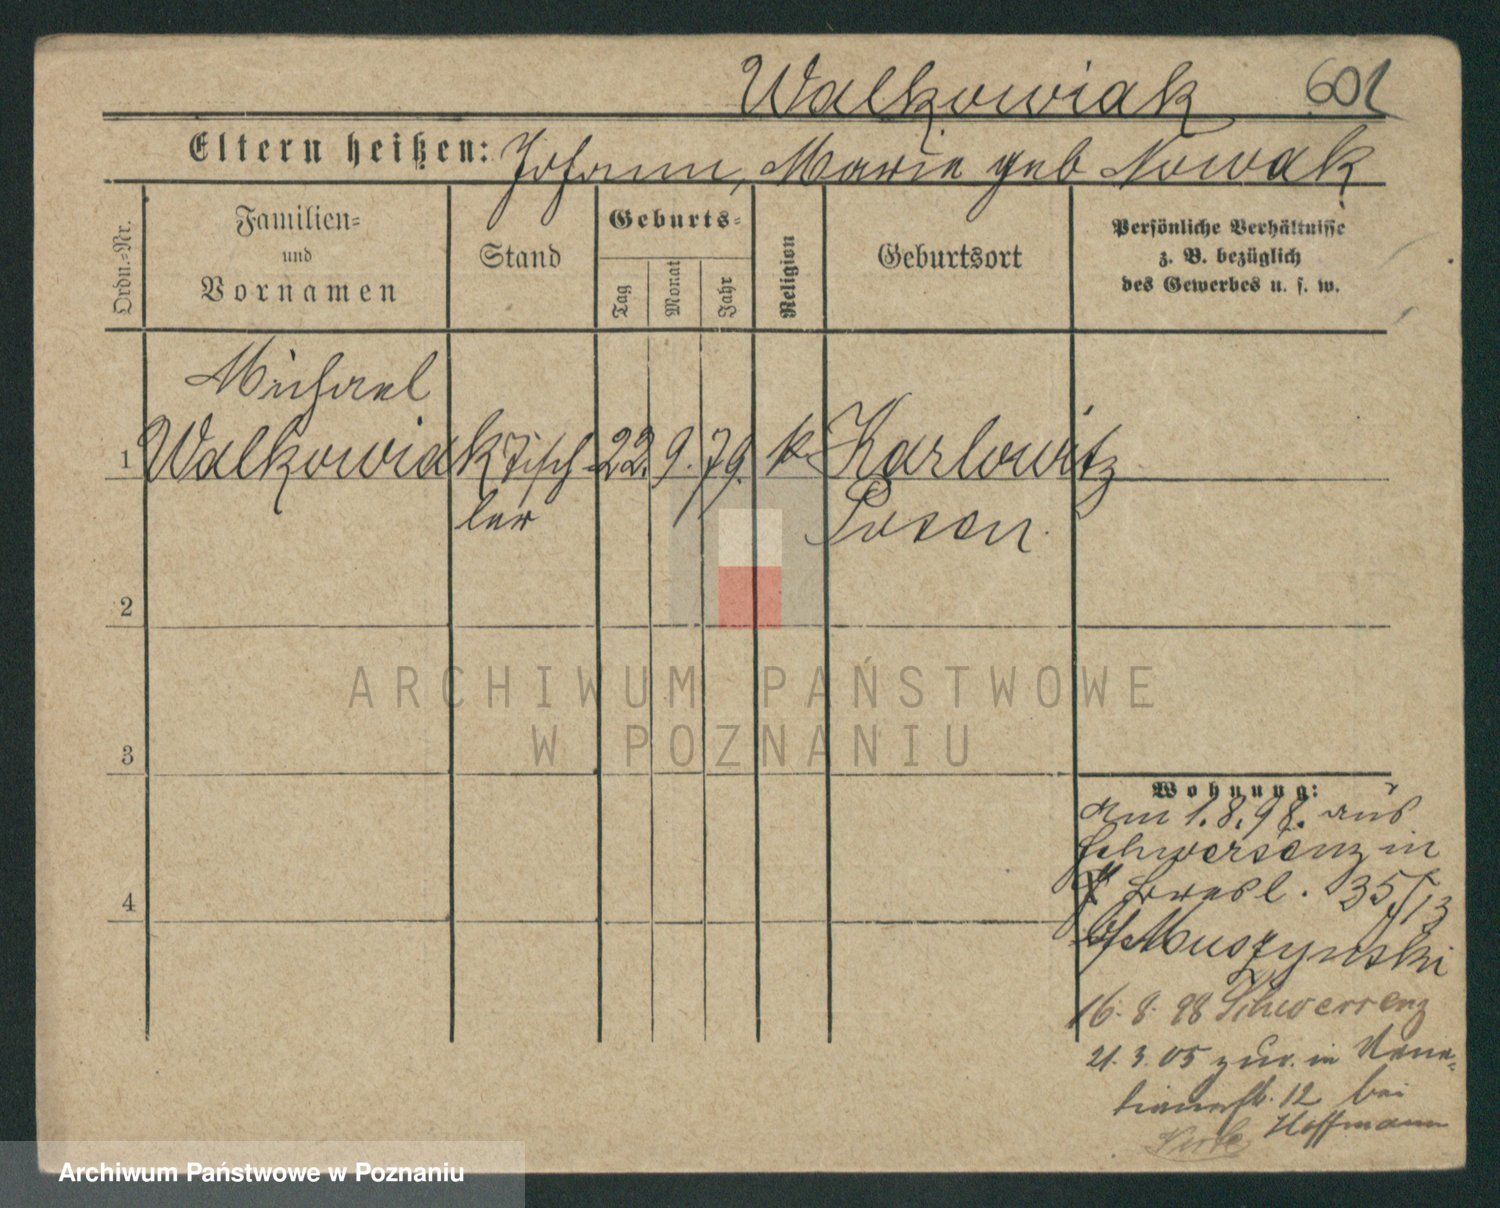 Walkowiak 601
Eltern heißen: Johann, Marie geb Nowak
Ordn.-Nr.
Familien-
und
Vornamen
Stand
Geburts-
Tag
Monat
Jahr
Religion
Geburtsort
Persönliche Verhältnisse
z. B. bezüglich
des Gewerbes u. s. w.
Michael
1 Walkowiak Tisch- 22. 9. 79. k Karlowitz
ler Posen
2
3
4
Wohnung:
am 1.8.98. aus
Schwersenz in
Bresl. 35/13
b/Muszynski
16. 8. 98 Schwersenz
21. 3. 05 zur. in
12 bei
Hoffmann
ARCHIWUM PAŃSTWOWE
W POZNANIU
Archiwum Państwowe w Poznaniu